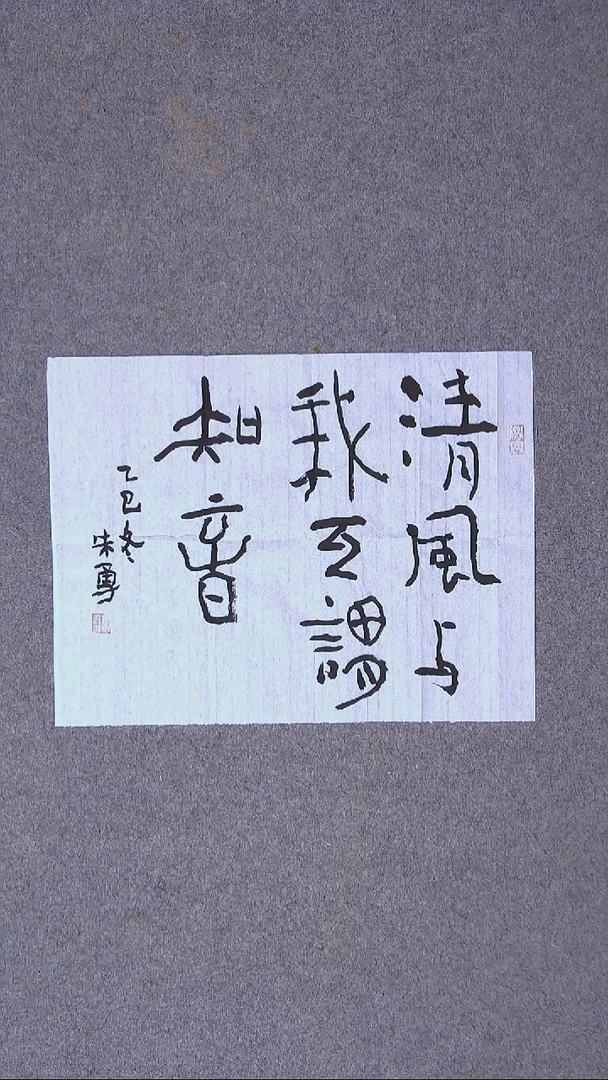 清風与
我互謂
知音
乙巳冬
朱勇